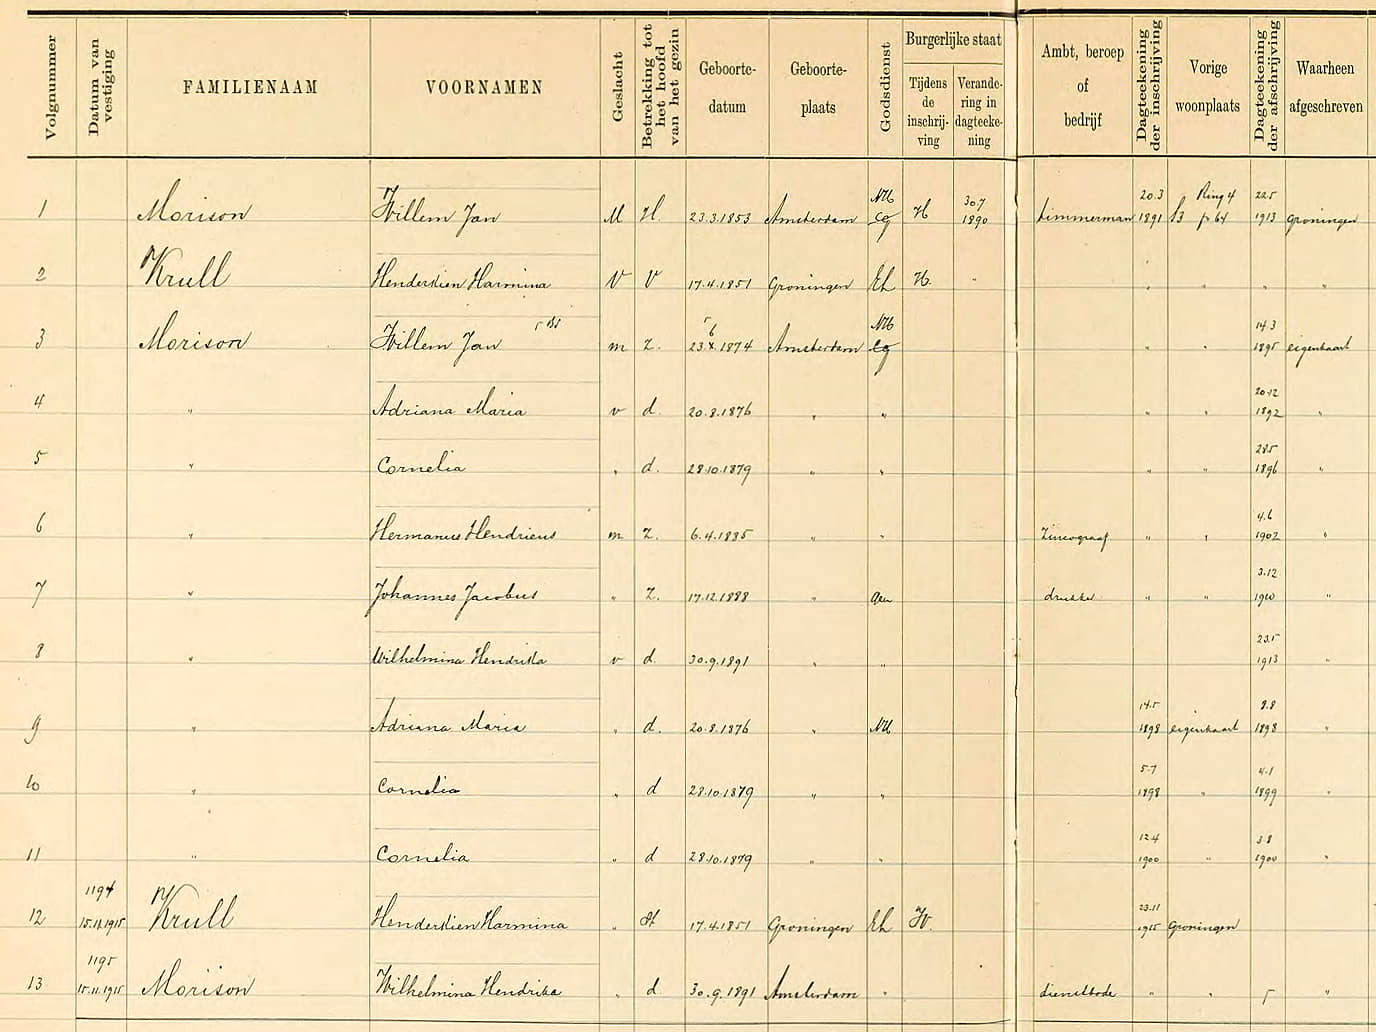 Volgnummer
Datum van vestiging
FAMILIENAAM
VOORNAMEN
Geslacht
Betrekking tot het hoofd van het gezin
Geboorte-
datum
Geboorte-
plaats
Godsdienst
Burgerlijke staat
Tijdens de inschrij-ving
Verande-ring in dagteeke-ning
Ambt, beroep
of
bedrijf
Dagteekening der inschrijving
Vorige
woonplaats
Dagteekening der afschrijving
Waarheen
afgeschreven
NH 30.7 20.3 Ring 4 22.5
1 Morison Willem Jan M H. 23.3.1853 Amsterdam cg H 1890 timmerman 1891 p 64 1913 Groningen
2 Krull Henderkien Harmina V V 17.4.1851 Groningen EL H. " " " " "
6 NH 14.3
3 Morison Willem Jan m Z. 23 1874 Amsterdam cg " " 1895 eigenkaart
20.12
4 " Adriana Maria v d. 20.8.1876 " " " " 1892 "
28.5
5 " Cornelia " d. 28.10.1879 " " " " 1896 "
4.6
6 " Hermanus Hendricus m Z. 6.4.1885 " " Zincograaf " " 1902 "
3.12
7 " Johannes Jacobus " Z. 17.12.1888 " drukker " " 1910 "
23.5
8 " Wilhelmina Hendrika v d. 30.9.1891 " " 1913 "
14.5 8.8
9 " Adriana Maria " d. 20.8.1876 " NH 1898 eigenkaart 1898 "
5.7 4.1
10 " Cornelia " d 28.10.1879 " " 1898 " 1899 "
12.4 3.8
11 " Cornelia " d 28.10.1879 " " 1900 " 1900 "
1194 23.11
12 15.11.1915 Krull Henderkien Harmina " 17.4.1851 Groningen EL W. 1915 Groningen
1195
13 15.11.1915 Morison Wilhelmina Hendrika " d 30.9.1891 Amsterdam " dienstbode " " "